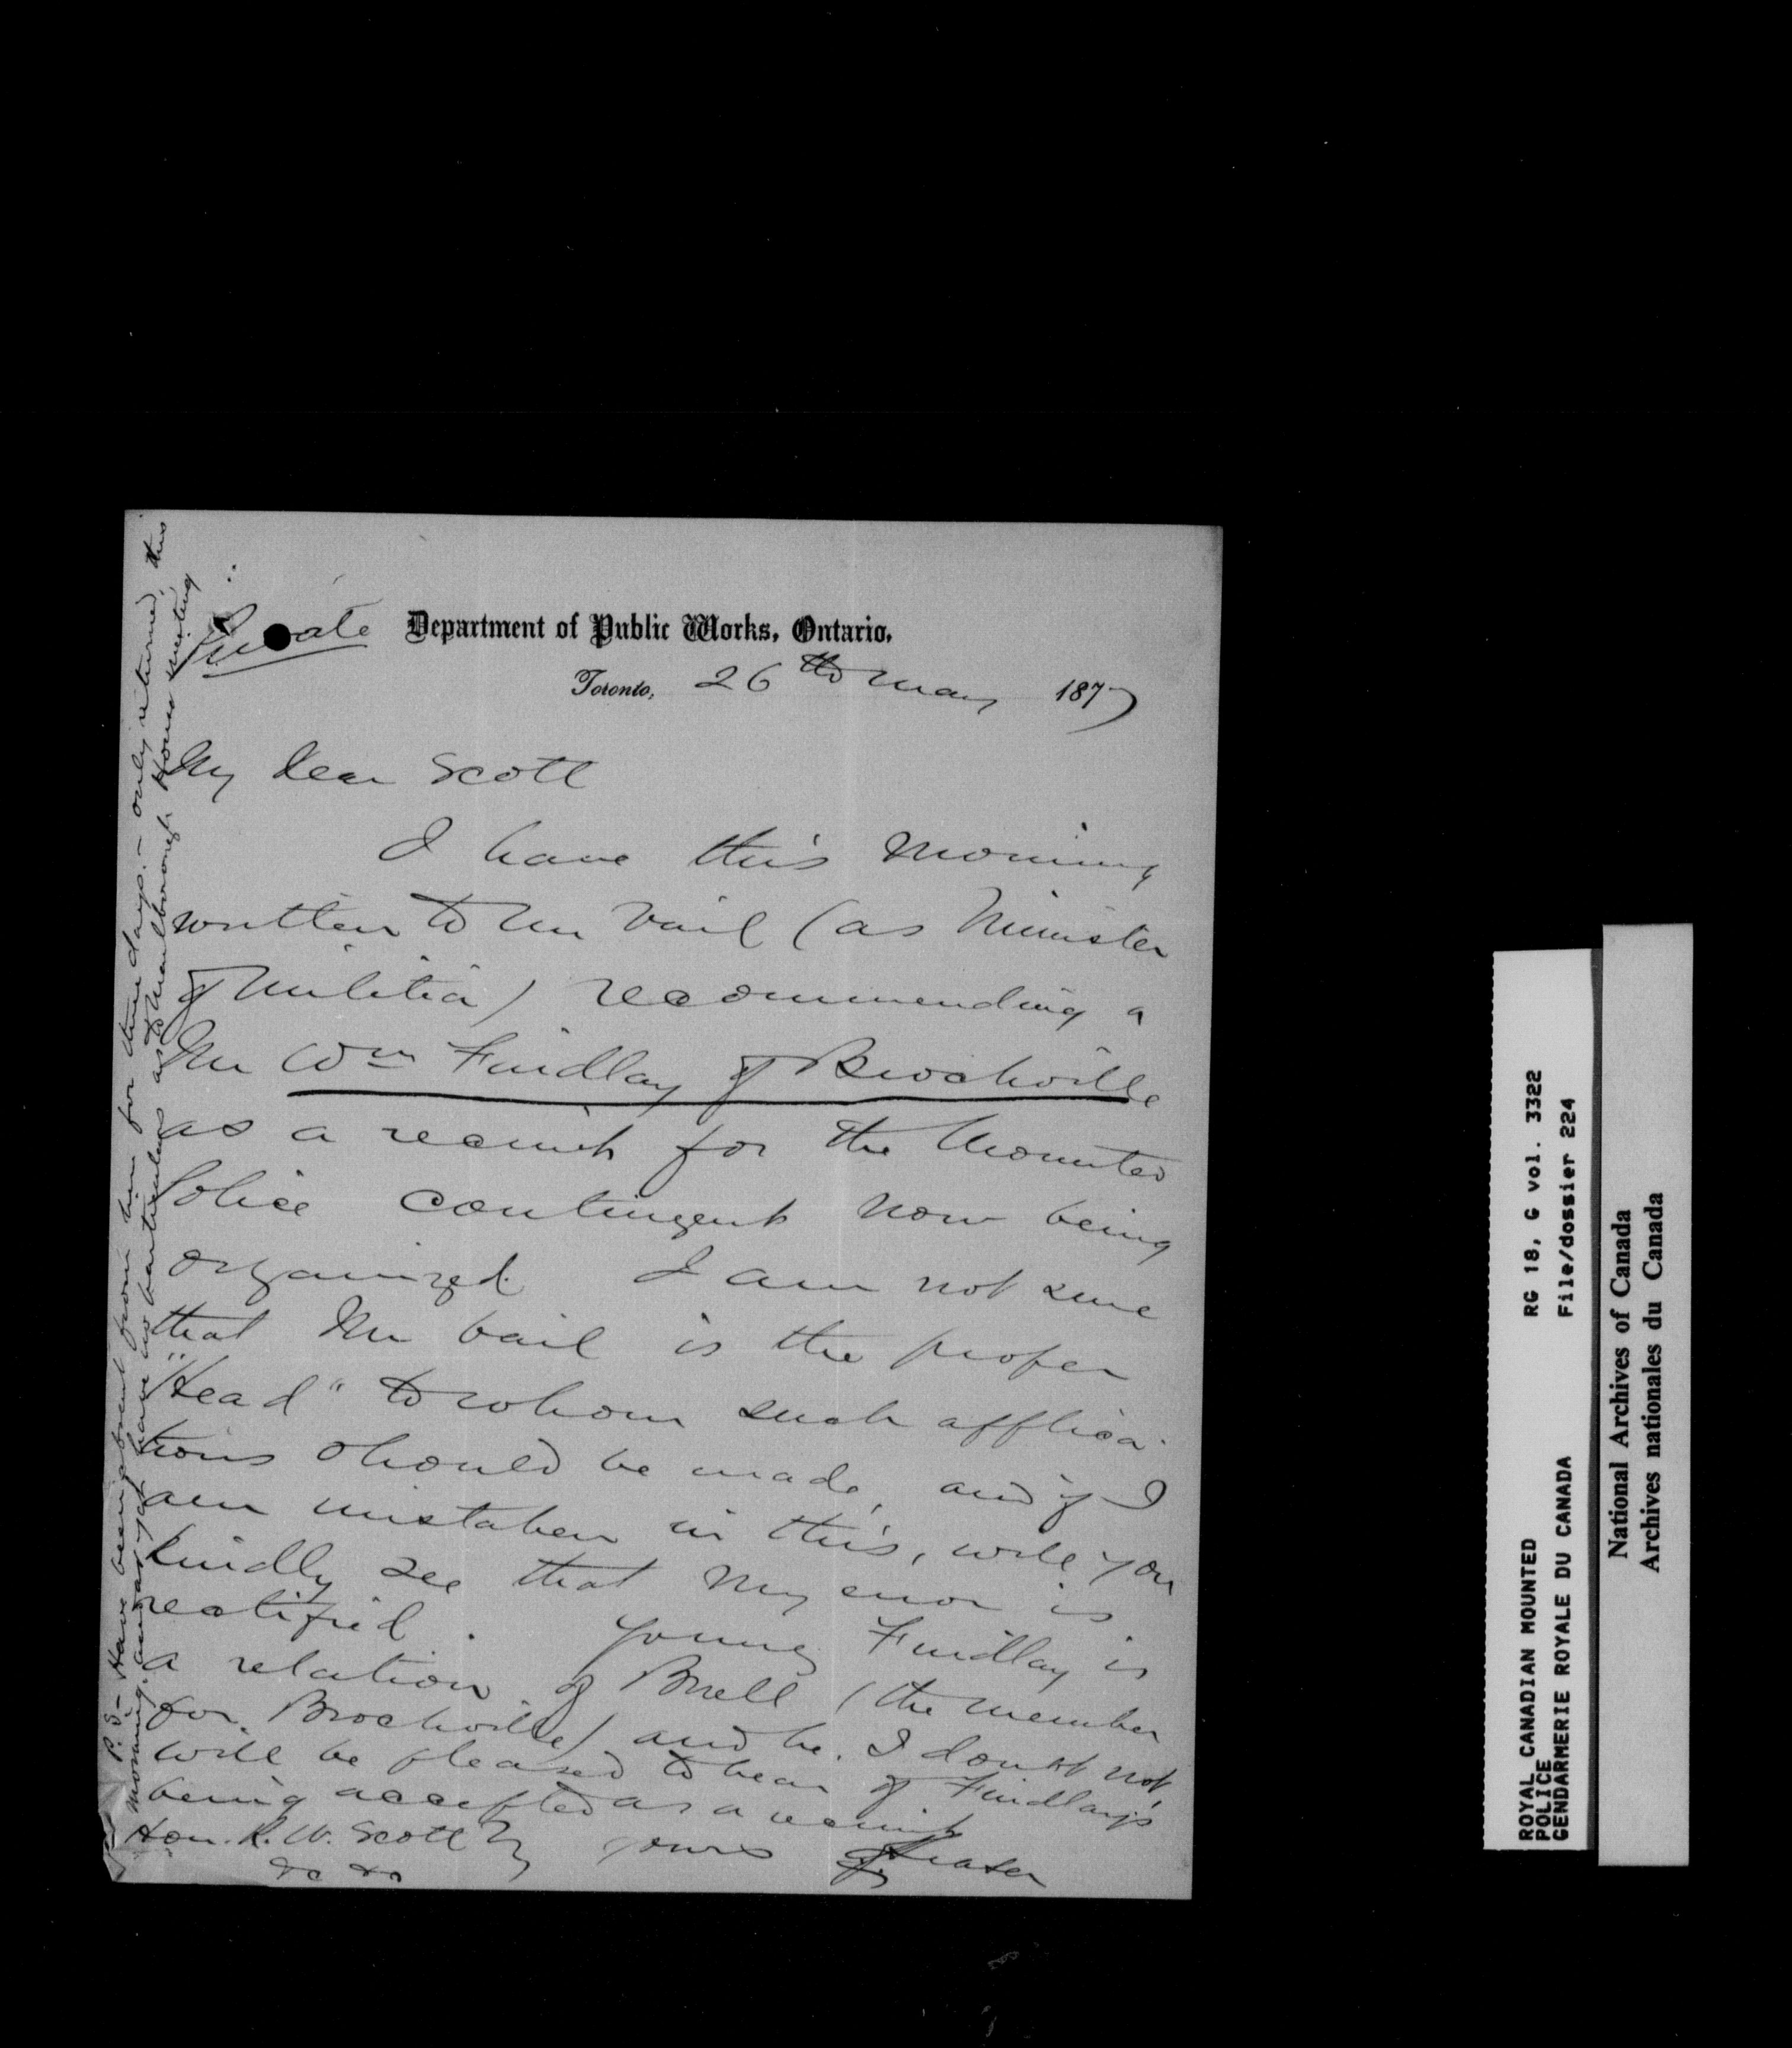 Private
Department of Public Works, Ontario.
Toronto, 26th May 1877
My dear Scott
I have this morning
written to Mr Vail (as Minister
of Militia) recommending a
Mr Wm Findlay of Brockville
as a recruit for the Mounted
Police contingent now being
organized. I am not sure
that Mr Vail is the proper
"Head" to whom such applica
tions should be made, and if I
am mistaken in this, will you
kindly see that my error is
rectified. Young Findlay is
a relation of Buell (the member
for Brockville) and he, I doubt not,
will be pleased to hear of Findlay's
being accepted as a recruit
yours
Fraser
Hon. R. W. Scott
&c &c
P.S. Have been absent from him for three days. - only returned this
morning, and as yet have no particulars as to Marlborough House meeting
ROYAL CANADIAN MOUNTED
POLICE
GENDARMERIE ROYALE DU CANADA
RG 18, G vol. 3322
File/dossier 224
National Archives of Canada
Archives nationales du Canada